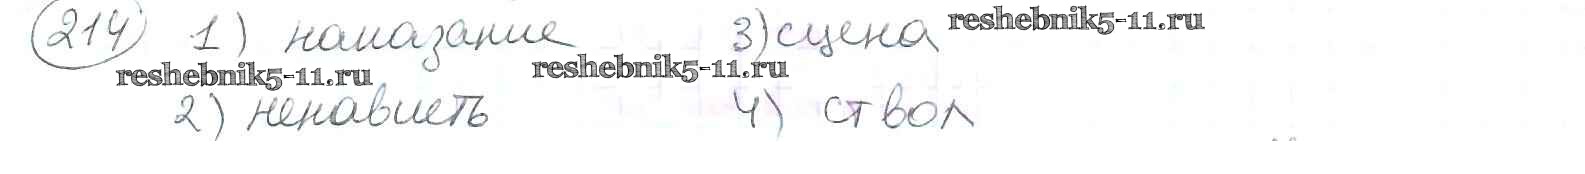 214 1) наказание 3) сцена reshebnik5-11.ru
reshebnik5-11.ru reshebnik5-11.ru
2) ненависть 4) ствол